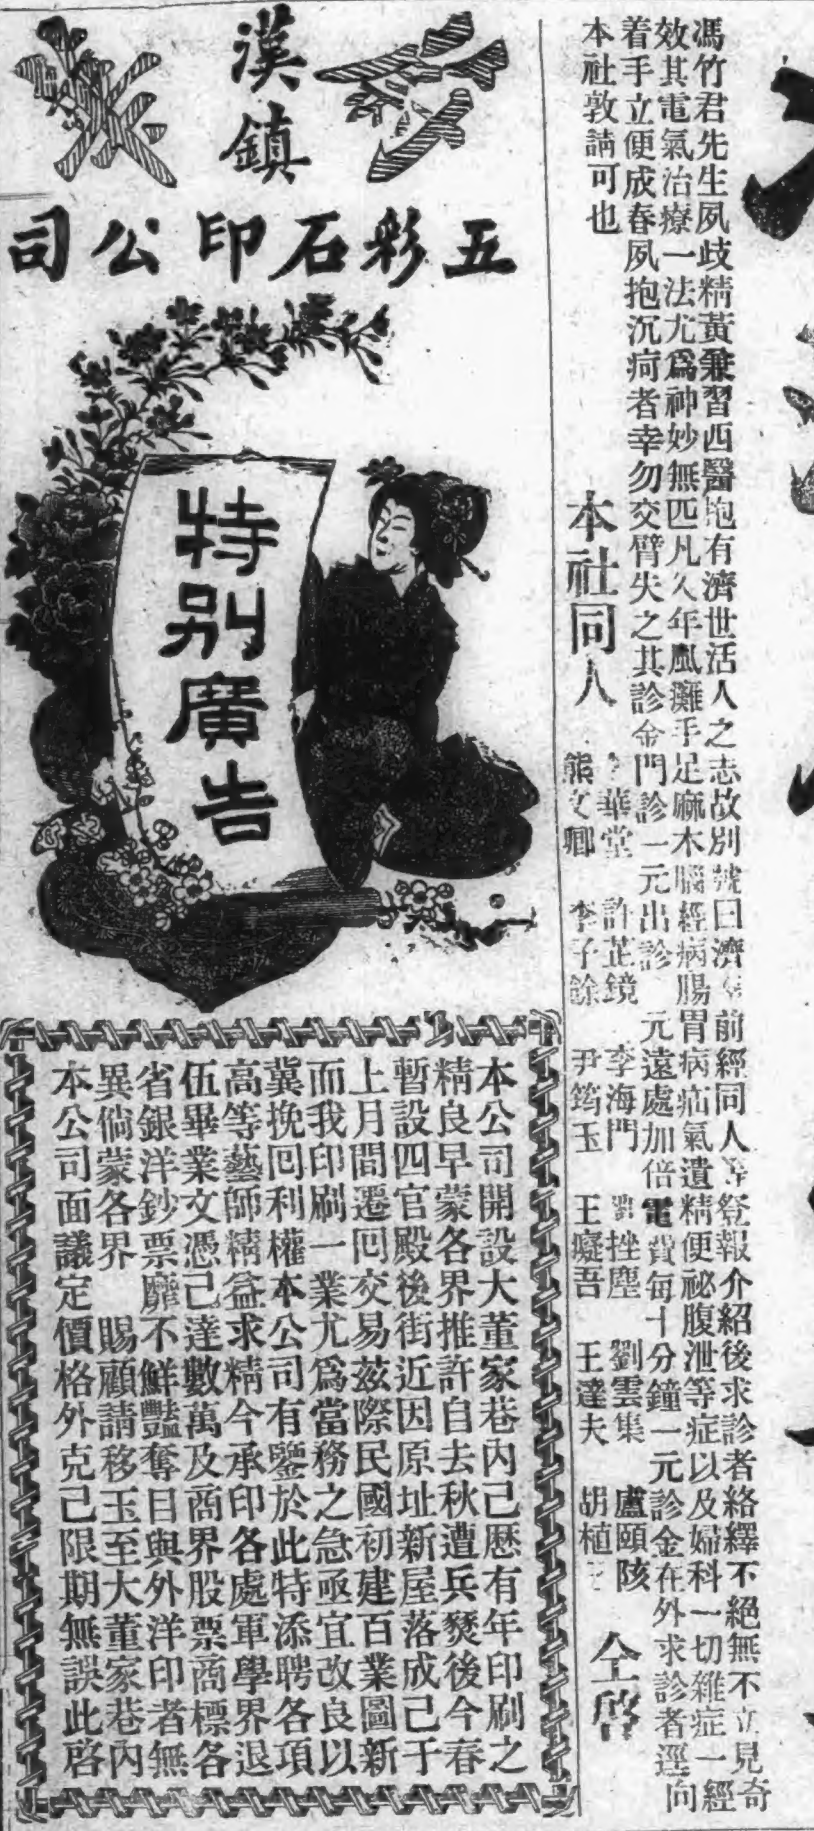 馮竹君先生夙歧精黃兼習西醫抱有濟世活人之志故別號曰濟前經同人等登報介紹後求診者絡繹不絕無不立見奇
效其電氣治療一法尤爲神妙無匹凡久年風癱手足麻木腦經病腸胃病疝氣遺精便祕腹泄等症以及婦科一切雜症一經
着手立便成春夙抱沉疴者幸勿交臂失之其診金門診一元出診 元遠處加倍電費每十分鐘一元診金在外求診者逕向
本社敦請可也
本社同人
華堂 許芷鏡 李海門 劉挫塵 劉雲集 盧頤陔
熊文卿 李子餘 尹筠玉 王癡吾 王達夫 胡植
仝啓
漢鎮
五彩石印公司
特別廣告
本公司開設大董家巷內已歷有年印刷之
精良早蒙各界推許自去秋遭兵燹後今春
暫設四官殿後街近因原址新屋落成己于
上月間遷回交易茲際民國初建百業圖新
而我印刷一業尤爲當務之急亟宜改良以
冀挽回利權本公司有鑒於此特添聘各項
高等藝師精益求精今承印各處軍學界退
伍畢業文憑己達數萬及商界股票商標各
省銀洋鈔票靡不鮮豔奪目與外洋印者無
異倘蒙各界 賜顧請移玉至大董家巷內
本公司面議定價格外克己限期無誤此啓